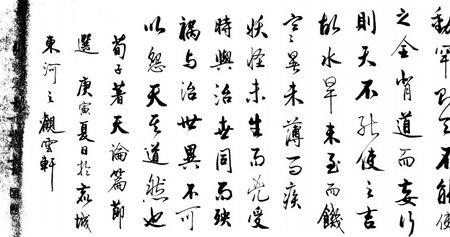 動罕則天不能使
之全背道而妄行
則天不能使之吉
故水旱未至而饑
寒暑未薄而疾
妖怪未生而兇受
時與治世同而殃
禍与治世異不可
以怨天其道然也
荀子著天論篇節
選 庚寅夏日於城
東河之觀雲軒